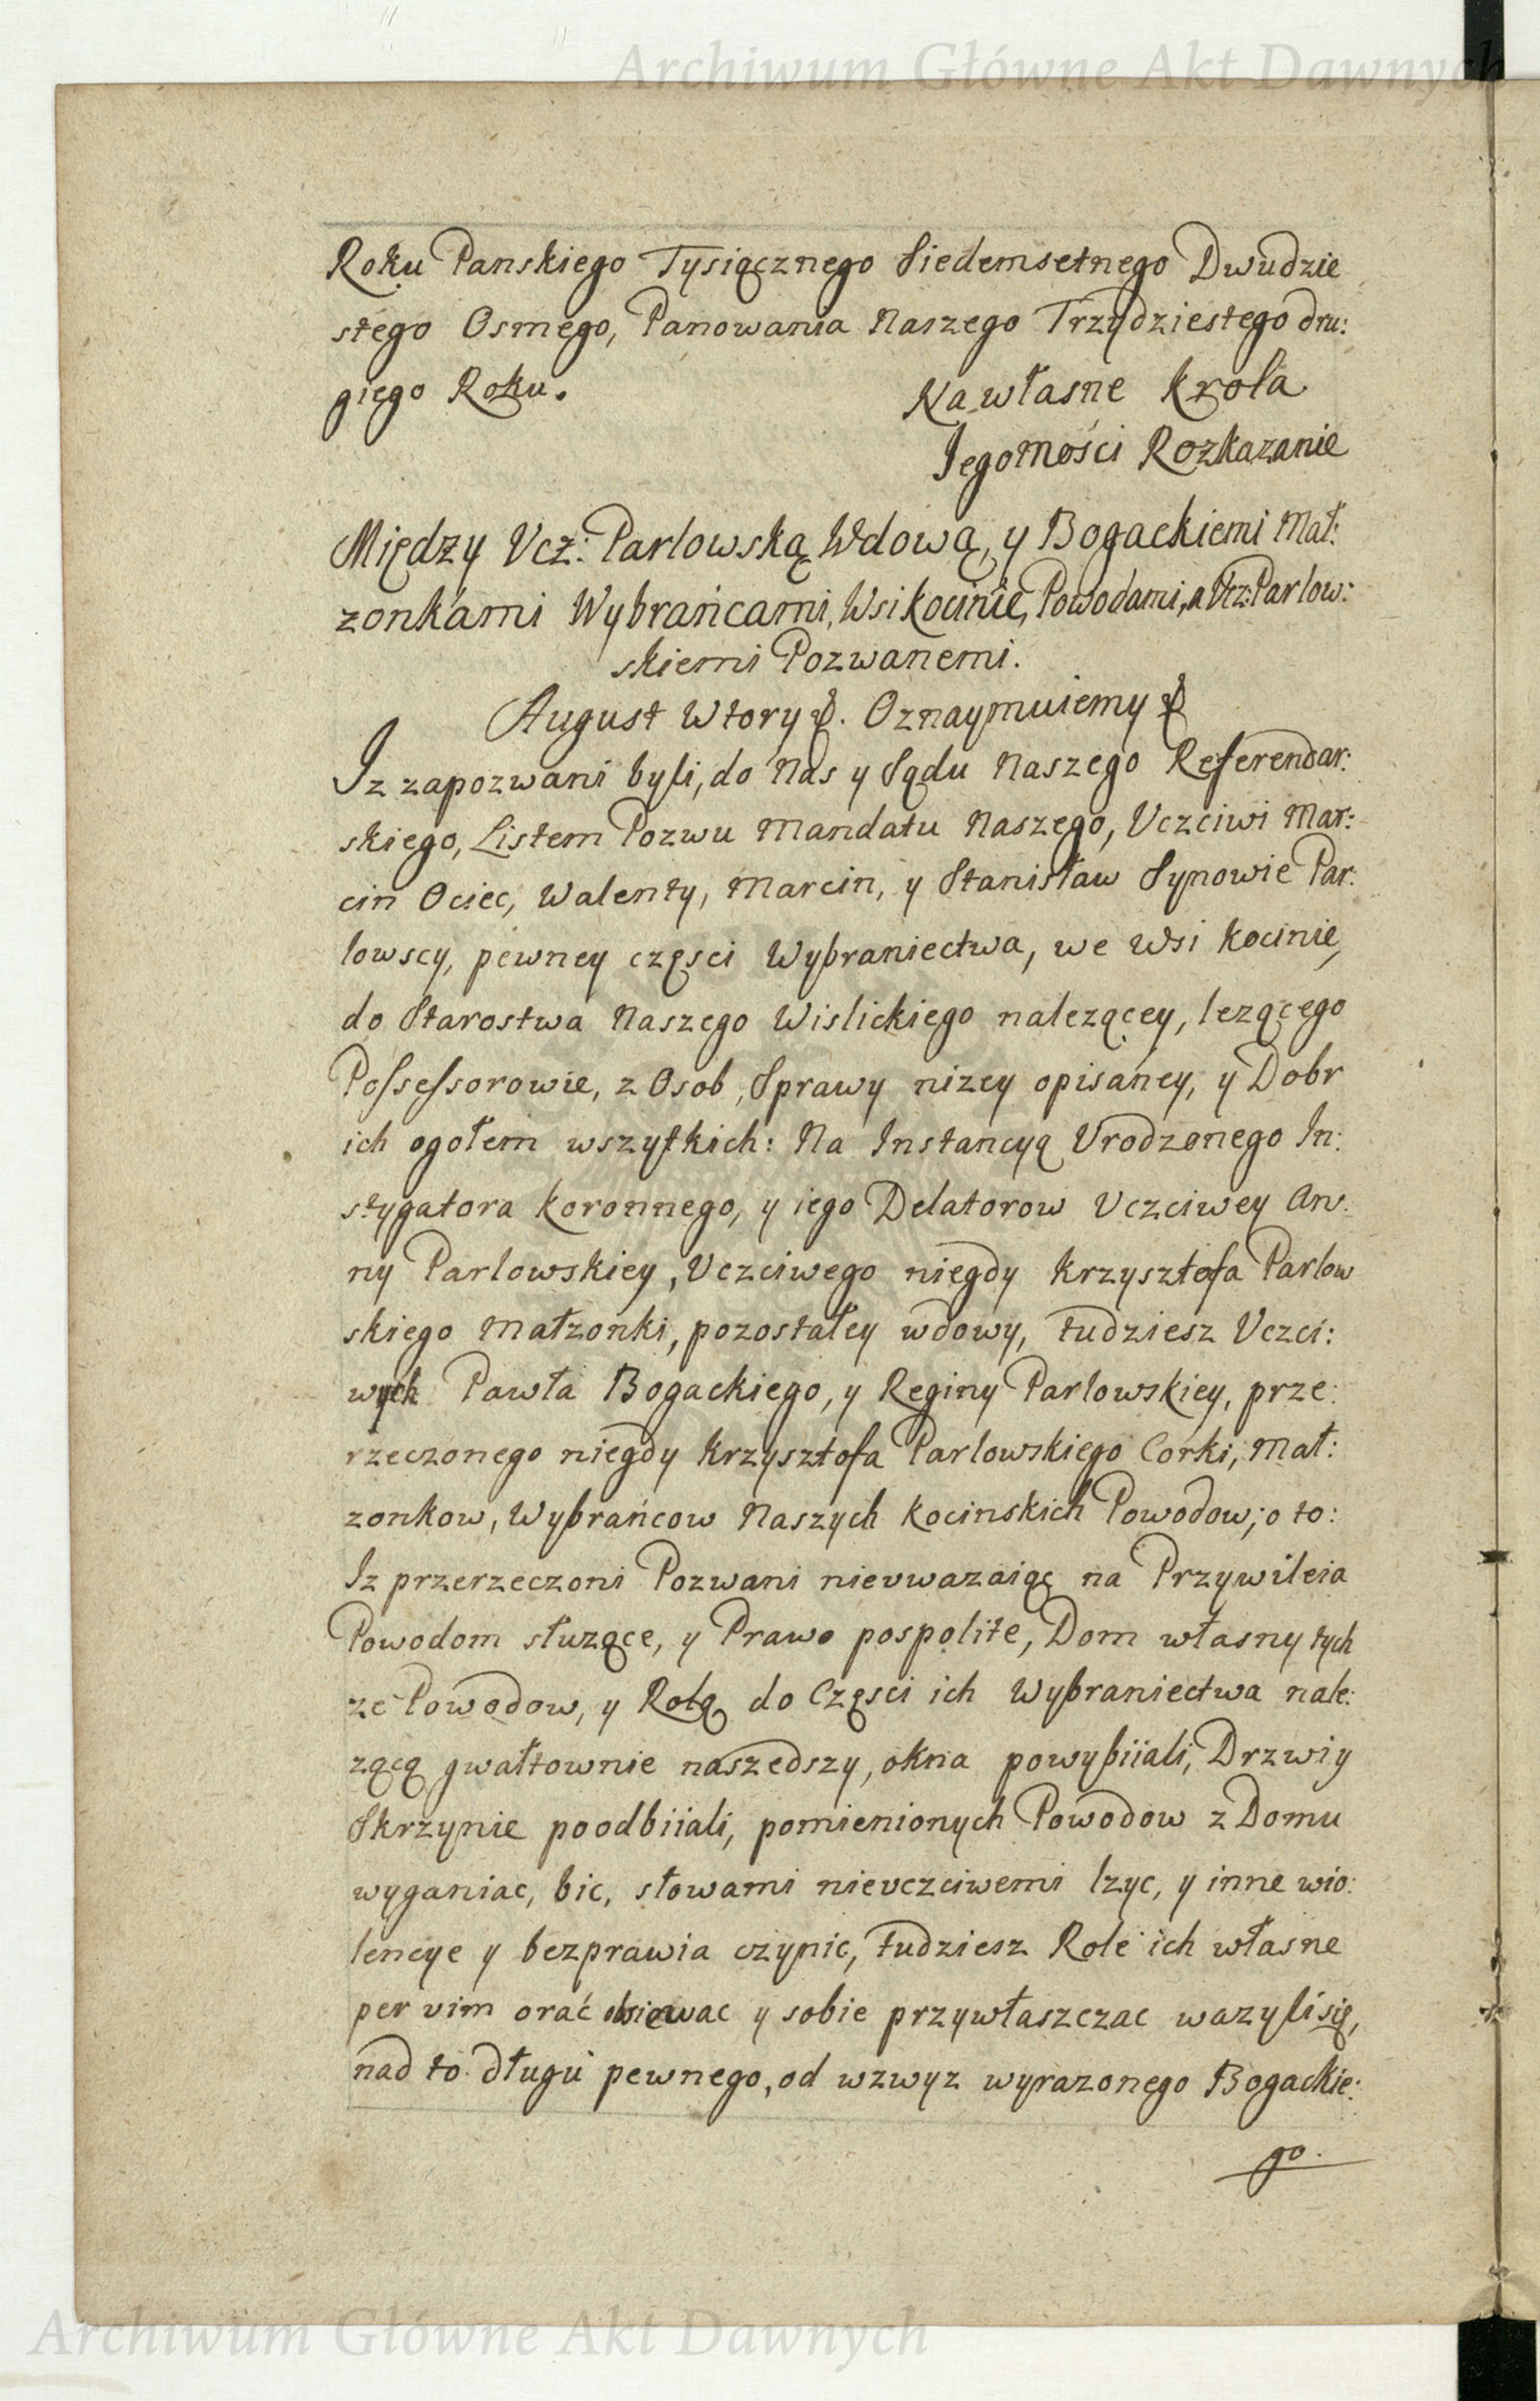 Archiwum Główne Akt Dawnych
Roku Panskiego Tysiącznego Siedemsetnego Dwudzie
stego Osmego, Panowania Naszego Trzydziestego dru:
giego Roku.
Na własne Krola
Jegomości Rozkazanie
Między Vcz: Parlowską Wdową, y Bogackiemi Mał:
zonkami Wybrańcami, Wsi Kocinie, Powodami, a Vcz: Parlow:
skiemi Pozwanemi.
August Wtory &. Oznaymuiemy &
Iz zapozwani byli, do Nas y Sądu Naszego Referendar:
skiego, Listem Pozwu Mandatu Naszego, Vczciwi Mar:
cin Ociec, Walenty, Marcin, y Stanisław Synowie Par:
lowscy, pewney częsci Wybraniectwa, we Wsi Kocinie,
do Starostwa Naszego Wislickiego nalezącey, lezącego
Possessorowie, z Osob, Sprawy nizey opisaney, y Dobr
ich ogołem wszytkich: Na Instancyą Vrodzonego In:
stygatora Koronnego, y iego Delatorow Vczciwey An:
ny Parlowskiey, Vczciwego niegdy Krzysztofa Parlow
skiego Małzonki, pozostałey wdowy, tudziesz Vczci:
wych Pawła Bogackiego, y Reginy Parlowskiey, prze:
rzeczonego niegdy Krzysztofa Parlowskiego Corki, Mał:
zonkow, Wybrańcow Naszych Kocinskich Powodow; o to:
Iz przerzeczoni Pozwani nieuwazaiąc na Przywileia
Powodom słuzące, y Prawo pospolite, Dom własny tych
ze Powodow, y Rolą do Częsci ich Wybraniectwa nale:
zącą gwałtownie naszedszy, okna powybiiali, Drzwi y
Skrzynie poodbiiali, pomienionych Powodow z Domu
wyganiac, bic, słowami nieuczciwemi lzyc, y inne wio:
lencye y bezprawia czynic, tudziesz Role ich własne
per vim orać obsiewac y sobie przywłaszczac wazyli się,
nad to długu pewnego, od wzwyz wyrazonego Bogackie:
go.
Archiwum Główne Akt Dawnych